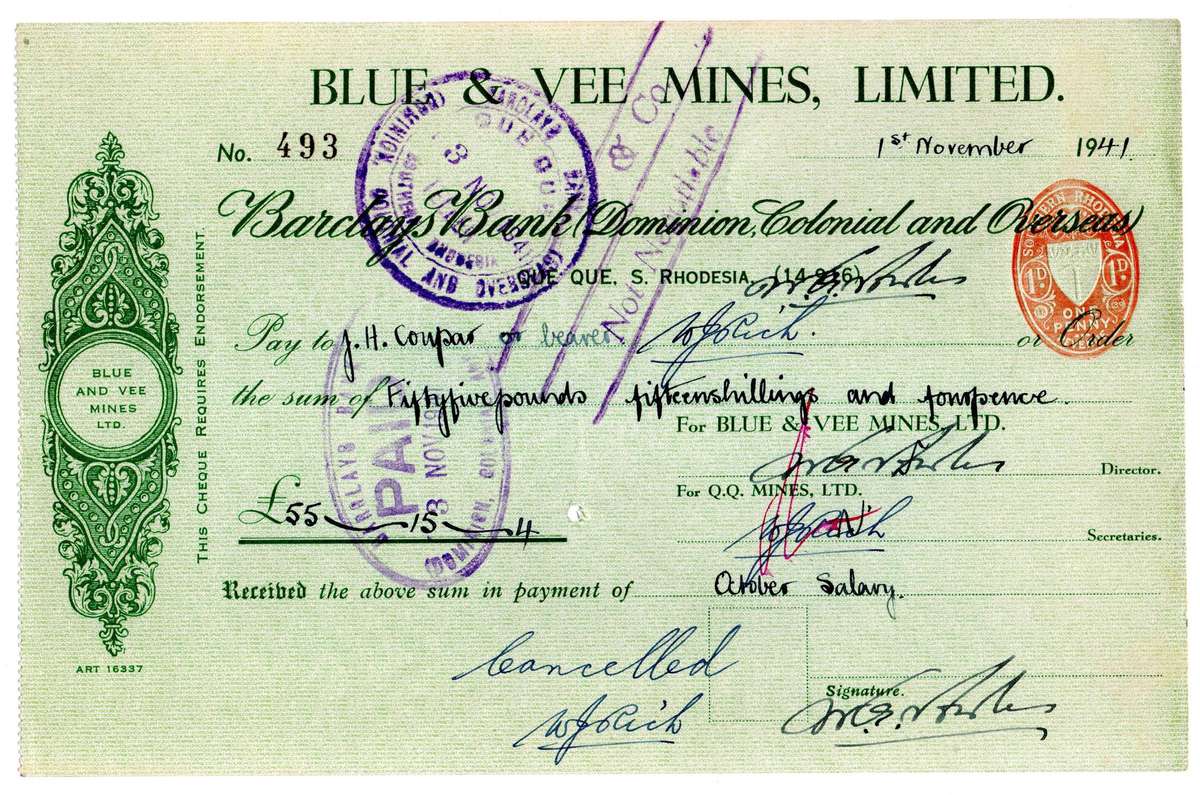 BLUE & VEE MINES, LIMITED.
No. 493
1st November 1941.
Barclays Bank (Dominion, Colonial and Overseas)
QUE QUE, S. RHODESIA. (14-926)
Pay to J. H. Coupar or bearer or Order
W J Rich.
the sum of Fiftyfivepounds fifteenshillings and fourpence.
For BLUE & VEE MINES, LTD.
Director.
For Q.Q. MINES, LTD.
£55 - 15 - 4
W J Rich
Secretaries.
Received the above sum in payment of October Salary.
Cancelled
W J Rich
Signature.
BLUE
AND VEE
MINES
LTD.
ART 16337
THIS CHEQUE REQUIRES ENDORSEMENT.
& Co.
Not Negotiable
BARCLAYS BANK (DOMINION, COLONIAL AND OVERSEAS)
QUE QUE
3 NOV 1941
SOUTHERN RHODESIA
BARCLAYS BANK
PAID
3 NOV 19
(DOMINION, COLONIAL
SOUTHERN RHODESIA
1D. 1D.
ONE
PENNY